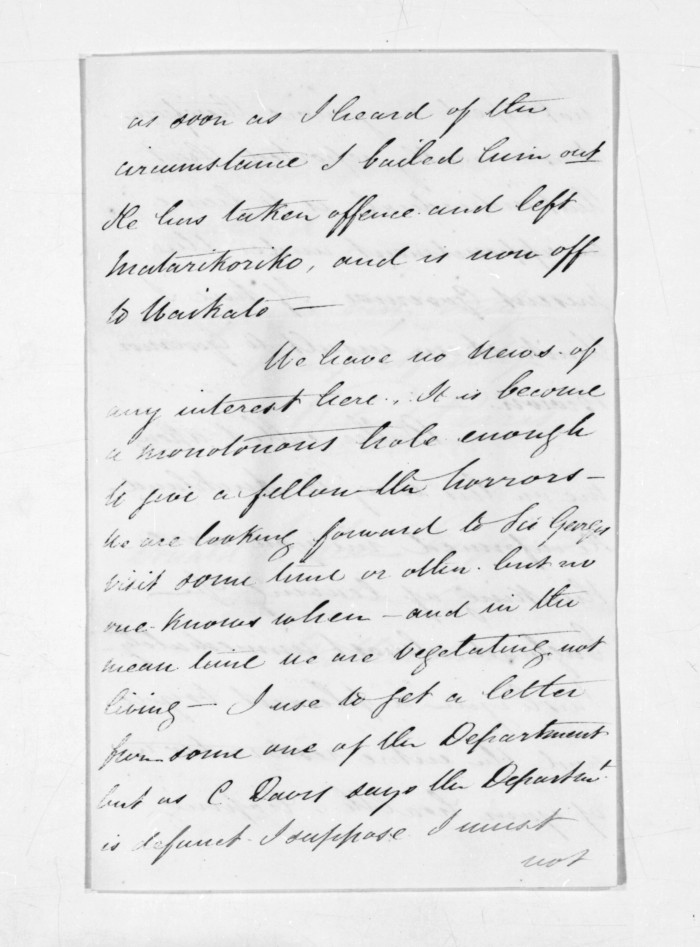 as soon as I heard of the
circumstance I bailed him out
He has taken offence and left
Matarikoriko, and is now off
to Waikato —
We have no news of
any interest here. It is become
a monotonous hole enough
to give a fellow the horrors —
We are looking forward to Sir Georges
visit some time or other. but no
one knows when — and in the
mean time we are vegetating not
living — I use to get a letter
from some one of the Department
but as C Davis says the Departmt.
is defunct. I suppose I must
not